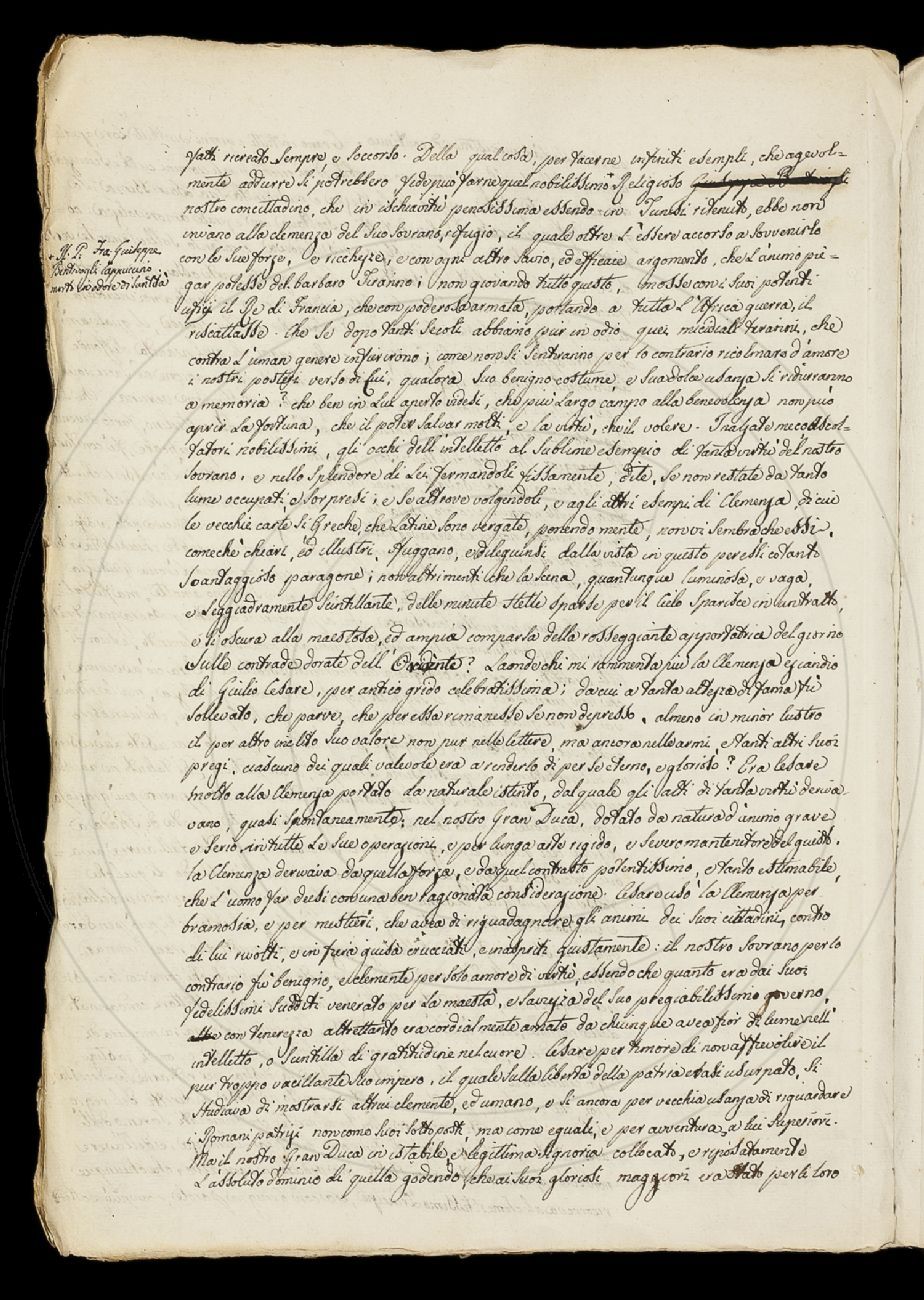 fatti ricreato sempre, e soccorso. Della qual cosa, per tacerne infiniti esempli, che agevol=
mente addurre si potrebbero fede può farne quel nobilissimo Religioso Giuseppe
nostro concittadino, che in ischiavitù penosissima essendo in Tunisi ritenuto, ebbe non
invano alla clemenza del suo Sovrano, refugio, il quale oltre l'essere accorso a sovvenirlo
+ Il P. Fra Giuseppe
Cappuccino
morto in odore di santità
con le sue forze, e ricchezze, e con ogni altro savio, ed efficace argomento, che l'animo pie=
gar potesse del barbaro Tiranno; non giovando tutto questo, mosse con i suoi potenti
ufizj il Re di Francia, che con poderosa armata, portando a tutta l'Affrica guerra, il
riscattasse. Che se dopo tanti secoli abbiamo pur in odio quei micidiali tiranni, che
contra l'uman genere infierirono; come non si sentiranno per lo contrario ricolmare d'amore
i nostri posteri verso di Lui, qualora suo benigno costume, e sua dolce usanza si ridurranno
a memoria? che ben in Lui aperto videsi, che più largo campo alla benevolenza non può
aprir la fortuna, che il poter salvar molti, e la virtù, che il volere. Inalzate meco Ascol=
tatori nobilissimi, gli occhi dell'intelletto al sublime esempio di tanta virtù del nostro
Sovrano, e nello splendore di Lei fermandoli fissamente, dite, se non restate da tanto
lume occupati, e sorpresi; e se altrove volgendoli, e agli altri esempi di Clemenza, di cui
le vecchie carte sì Greche, che Latine sono vergate, ponendo mente, non vi sembra che essi,
comechè chiari, ed illustri, fuggano, e dileguinsi dalla vista in questo per essi cotanto
svantaggioso paragone; non altrimenti che la scena, quantunque luminosa, e vaga,
e leggiadramente scintillante, delle minute stelle sparse per il Cielo sparisce in un tratto,
e si oscura alla maestosa, ed ampia comparsa della rosseggiante apportatrice del giorno
sulle contrade dorate dell'Oriente? Laonde chi mi rammenta più la Clemenza eziandio
di Giulio Cesare, per antico grido celebratissima; da cui a tanta altezza di fama fù
sollevato, che parve, che per essa rimanesse se non depresso, almeno in minor lustro
il per altro inclito suo valore non pur nelle lettere, ma ancora nelle armi, e tanti altri suoi
pregi, ciascuno dei quali valevole era a renderlo di per se eterno, e glorioso? Era Cesare
molto alla Clemenza portato da naturale istinto, dal quale gli atti di tanta virtù deriva=
vano, quasi spontaneamente; nel nostro Gran Duca, dotato da natura d'animo grave
e serio, in tutte le sue operazioni, e per lunga arte rigido, e severo mantenitore del giusto,
la Clemenza derivava da quella forza, e da quel contrasto potentissimo, e tanto estimabile,
che l'uomo far deesi con una ben ragionata considerazione. Cesare usò la Clemenza per
bramosia, e per mestieri, che avea di riguadagnare gli animi dei suoi cittadini, contro
di lui rivolti, e in fiera guisa crucciati, e inaspriti giustamente: il nostro Sovrano per lo
contrario fù benigno, e clemente per solo amore di virtù, essendo che quanto era dai suoi
fidelissimi sudditi venerato per la maestà, e saviezza del suo pregiabilissimo governo,
con tenerezza altrettanto era cordialmente amato da chiunque avea fior di lume nell'
intelletto, o scintilla di gratitudine nel cuore. Cesare per timore di non affievolire il
pur troppo vacillante suo impero, il quale sulla libertà della patria erasi usurpato, si
studiava di mostrarsi altrui clemente, ed umano, e sì ancora per vecchia usanza di riguardare
i Romani patrizj non come suoi sottoposti, ma come eguali, e per avventura, a lui superiori.
Ma il nostro Gran Duca in istabile, e legittima signoria collocato, e riposatamente
l'assoluto dominio di quella godendo, che ai suoi gloriosi maggiori era stato per le loro